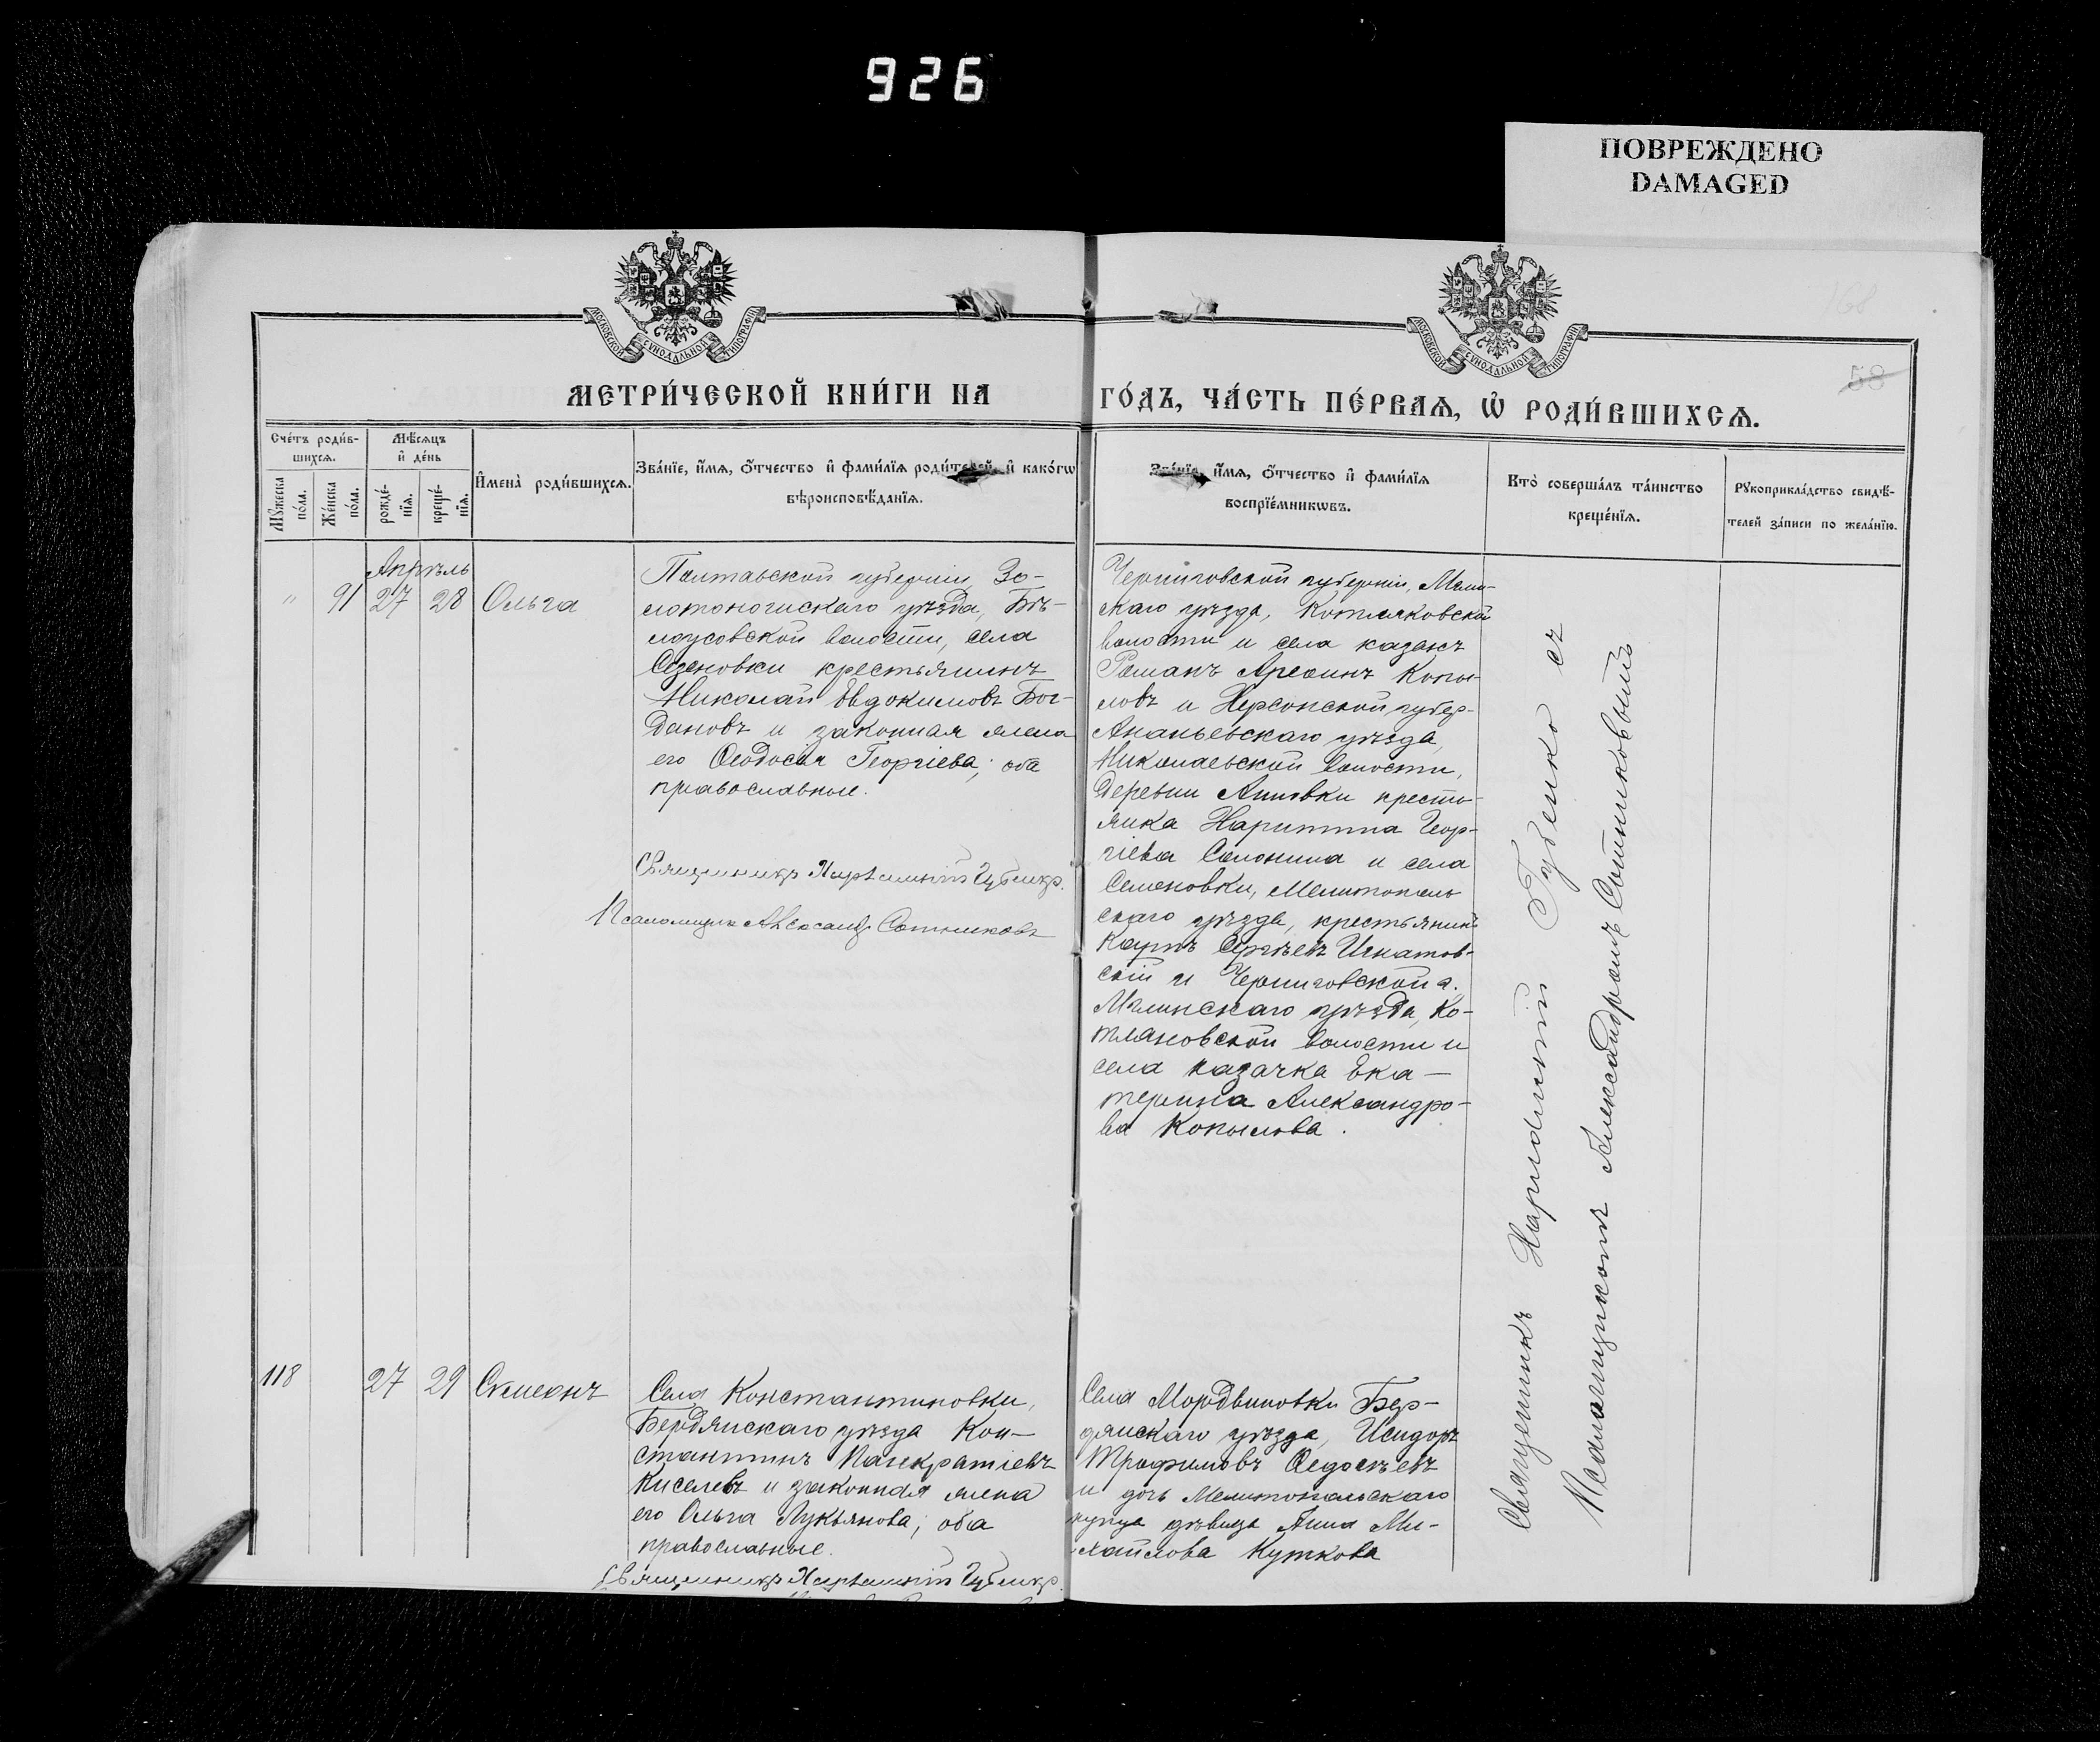 926
ПОВРЕЖДЕНО
DAMAGED
168
58
МОСКОВСКОЙ СУНОДАЛЬНОЙ ТИПОГРАФІИ
МОСКОВСКОЙ СУНОДАЛЬНОЙ ТИПОГРАФІИ
МЕТРИ́ЧЕСКОЙ КНИ́ГИ НА
ГО́ДЪ, ЧА́СТЬ ПЕ́РВАѦ, Ѡ҆ РОДИ́ВШИХСѦ.
Сче́тъ роди́в-
шихсѧ.
Мꙋжеска по́ла.
Же́нска по́ла.
Мѣ́сѧцъ
и҆ де́нь
рожде́-
нїѧ.
креще́-
нїѧ.
И҆мена̀ роди́вшихсѧ.
Зва́нїе, и҆́мѧ, ѻ҆́тчество и҆ фами́лїѧ роди́телей, и҆ како́гѡ
вѣроисповѣ́данїѧ.
Зва́нїе, и҆́мѧ, ѻ҆́тчество и҆ фами́лїѧ
воспрїе́мникѡвъ.
Кто̀ соверша́лъ та́инство
креще́нїѧ.
Рꙋкоприкла́дство свидѣ́-
телей за́писи по жела́нїю.
Апрѣль
" 91 27 28 Ольга
Полтавской губерніи, Зо-
лотоношскаго уѣзда, Бѣ-
лоусовской волости, села
крестьянинъ
Николай Евдокимовъ Бог-
дановъ и законная жена
его Ѳеодосія Георгіева; оба
православные.
Священникъ Харлампій Губенко.
Псаломщикъ Александръ Сотниковъ
Черниговской губерніи, Мглин-
скаго уѣзда, Котляковской
волости и села казакъ
Романъ Копы-
ловъ и Херсонской губер.
Ананьевскаго уѣзда,
Николаевской волости,
деревни Анновки кресть-
янка Харитина Геор-
гіева и села
Семеновки, Мелитополь
скаго уѣзда, крестьянинъ
Карпъ Сергѣевъ Игнатов-
скій и Черниговской г.
Мглинскаго уѣзда, Ко-
тляковской волости и
села казачка Ека-
терина Александро-
ва Копылова.
118 27 29 Симеонъ
Села Константиновки,
Бердянскаго уѣзда Кон-
стантинъ Панкратіевъ
Киселевъ и законная жена
его Ольга Лукьянова; оба
православные.
Священникъ Харлампій Губенко.
Села Мордвиновки Бер-
дянскаго уѣзда, Исидоръ
Трофимовъ Ѳедосѣевъ
и дочь Мелитопольскаго
купца дѣвица Анна Ми-
хайлова Куткова
Священникъ Харлампій Губенко съ
Псаломщикомъ Александромъ Сотниковымъ